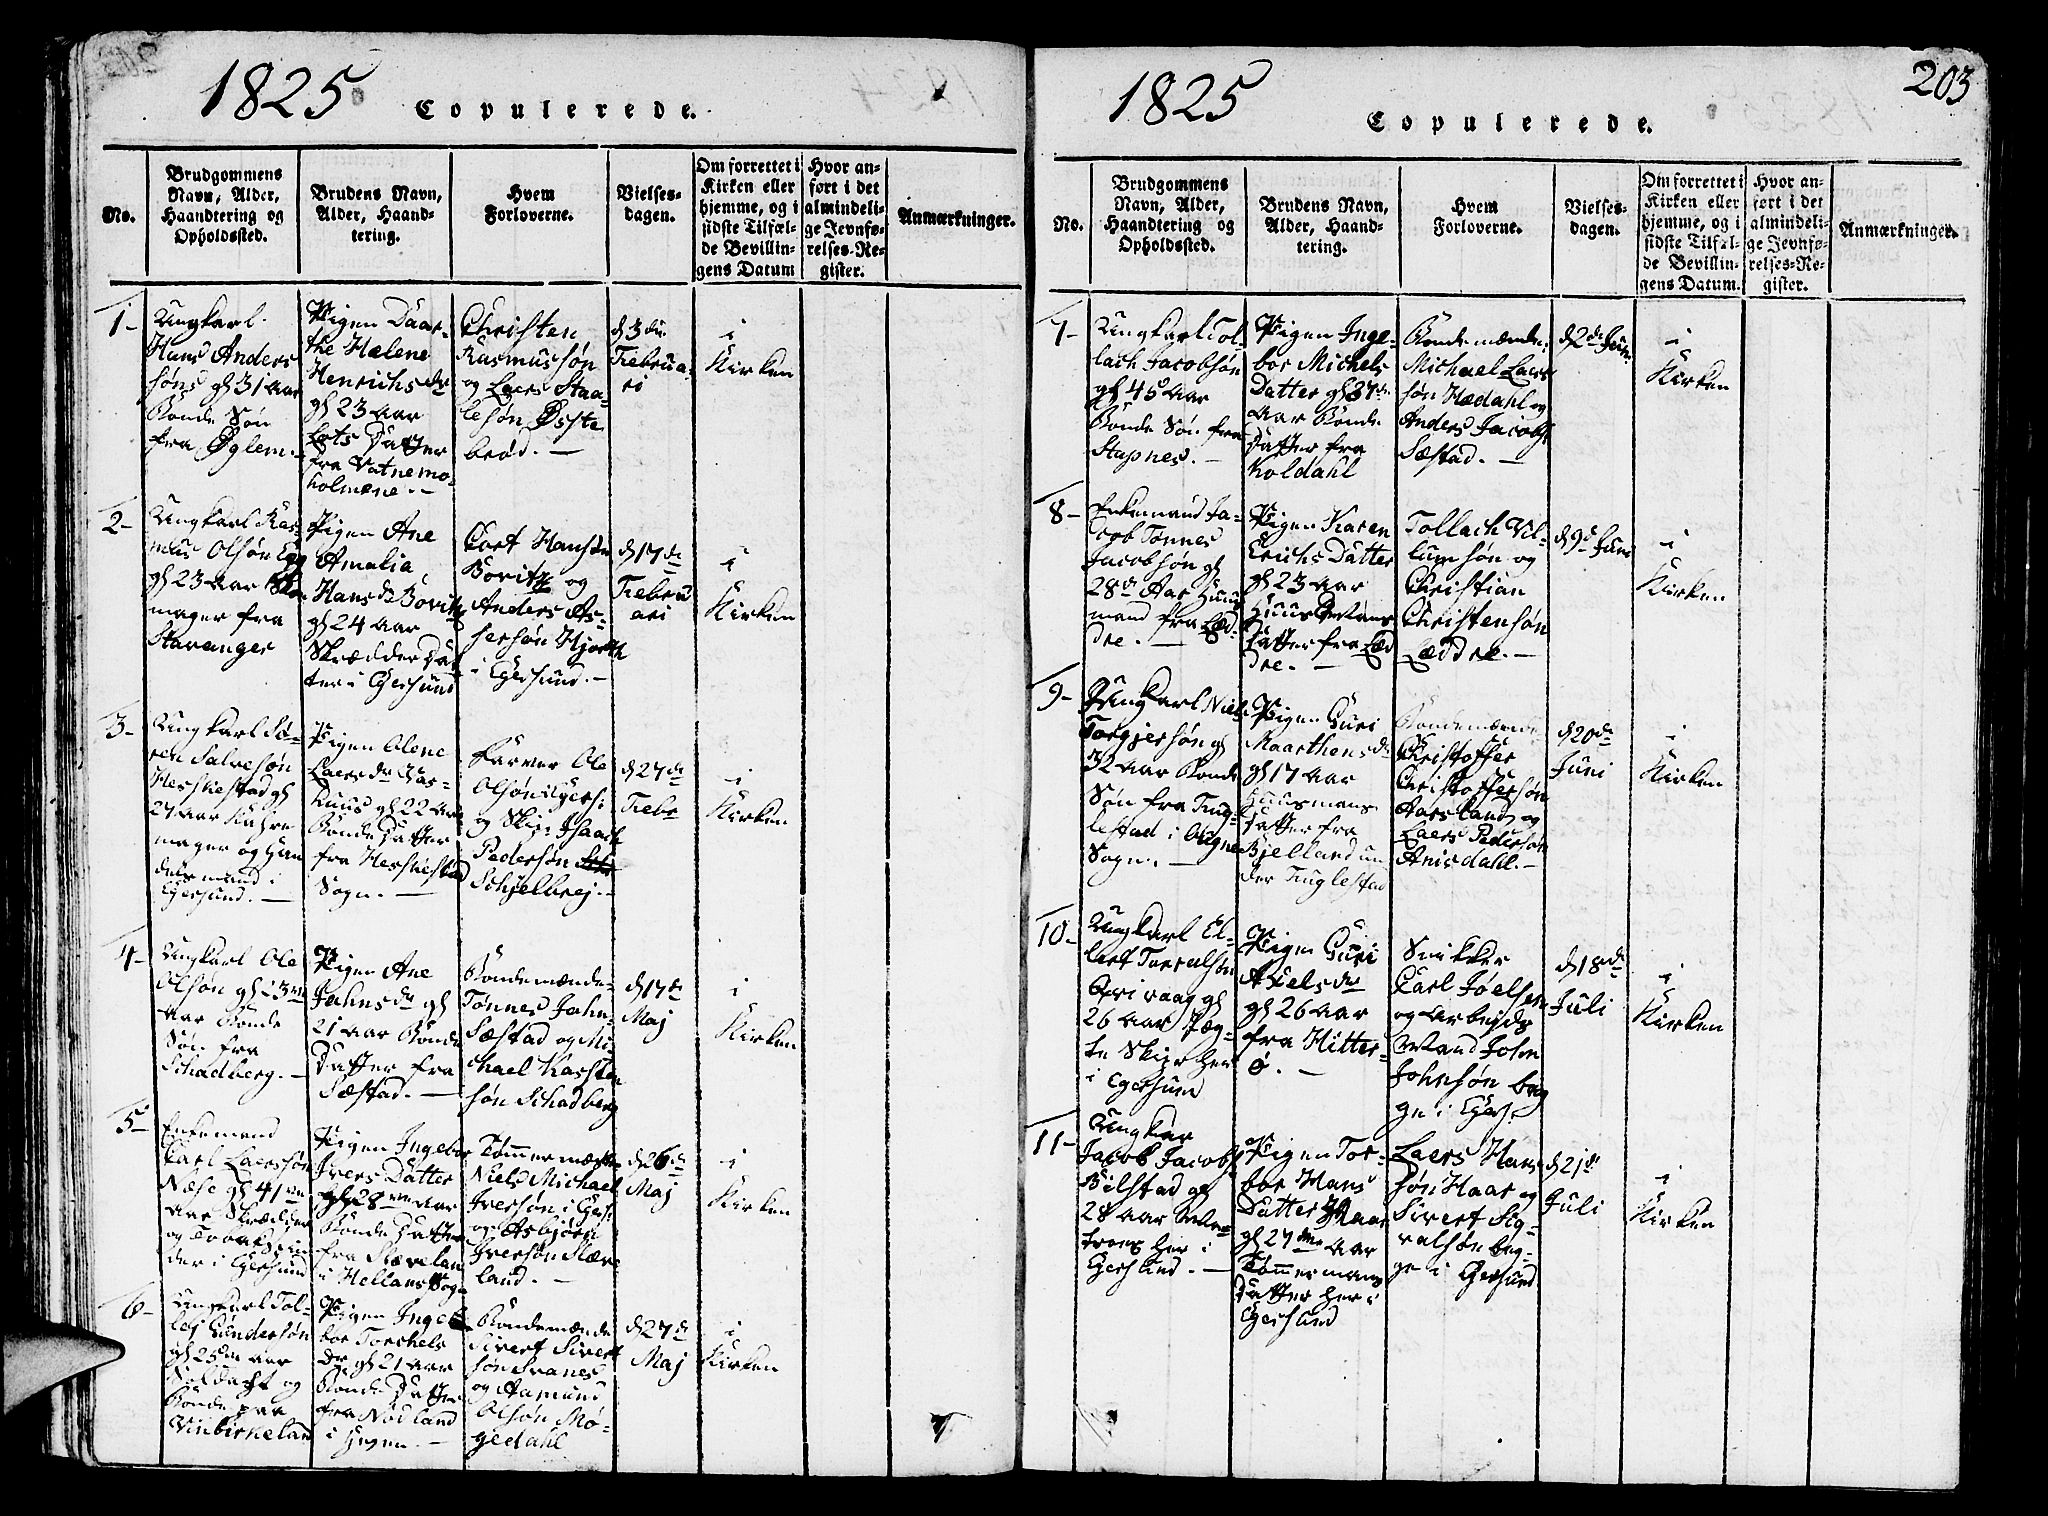 1825
Copulerede.
No.
Brudgommens
Navn, Alder,
Haandtering og
Opholdssted.
Brudens Navn,
Alder, Haand-
tering.
Hvem
Forloverne.
Vielses-
dagen.
Om forrettet i
Kirken eller
hjemme, og i
sidste Tilfæl-
de Bevillin-
gens Datum
Hvor an-
ført i det
almindeli-
ge Jevnfø-
relses-Re-
gister.
Anmærkninger.
1-
Ungkarl
Hans Anders
søns gl 31 Aar
Bonde Søn
fra Øglem.-
Pigen Daar-
the Hælene
Henrichs dr
gl 23 Aar
Lots Datter
fra Vatnemo-
holmene.-
Christen
Rasmussøn
og Laers Staa-
lesøn Øsste
brød.-
d 3die
Februa-
ri
i
Kirken
2-
Ungkarl Ras-
mus Olsøn Egg
gl 23 Aar Sko-
mager fra
Stavanger
Pigen Ane
Amalia
Hans dr Bovitz
gl 24 Aar
Skrædder Dat
ter i Egersund
Cort Hansen
Bovitz og
Anders As-
sersøn Hjorth
i Egersund.-
d 17de
Febru
ari
i
Kirken
3-
Ungkarl Sø-
ren Salvesøn
Heskestad gl
27 Aar
mager og Han
delsmand i
Egersund.-
Pigen Olene
Laers dr
gl 22 Aar
Bonde Datter
fra Heskestad
Sogn.-
Farver Ole
Olsøn i Egers:
og Skipr Isaach
Pedersøn
Schjelbrej.-
d 27de
Febr
i
Kirken
4-
Ungkarl Ole
Olsøn gl 23
Aar Bonde
Søn fra
Schadberg.-
Pigen Ane
Jahns dr gl
21 Aar Bonde
Datter fra
Sæstad.-
Bondemænde-
Tønnes Jahn-
Sæstad og Mi-
chael Karsten
søn Schadberg
d 17de
Maj
i
Kirken
5-
Enkemand
Carl Laerssøn
Næse gl 41
Aar Skrædder
i Egersund
Pigen Ingebor
Ivers Datter
gl 28 Aar
Bonde Datter
fra Slæveland
i Hellans Sogn
Tømmermester
Niels Michael
Iversøn i Egers
og Asbjørn
Iversøn Slæve
land.-
d 26de
Maj
i
Kirken
6-
Ungkarl Tol-
lej Gundersøn
gl 25 Aar
Soldadt og
Bonde paa
Vinbirkeland
Pigen Inge
bor Torchels
Dr gl 21 Aar
Bonde Datter
fra Nodland
i Hegen.-
Bondemænde
Sivert Sivert
søn Svanes
og Aamund
Olsøn Mø-
gedahl
d 27de
Maj
i
Kirken
1825
203
Copulerede.
No.
Brudgommens
Navn, Alder,
Haandtering og
Opholdssted.
Brudens Navn,
Alder, Haand-
tering.
Hvem
Forloverne.
Vielses-
dagen.
Om forrettet i
Kirken eller
hjemme, og i
sidste Tilfæl-
de Bevillin-
gens Datum.
Hvor an-
ført i det
almindeli-
ge Jevnfø-
relses-Re-
gister.
Anmærkninger.
7-
Ungkarl Tol-
lach Jacobsøn
gl 45 Aar
Bonde Søn fra
Stapnes.-
Pigen Inge-
bor Michels
Datter gl 37
Aar Bonde
Datter fra
Koldahl
Bondemænde:
Michael Laers
søn Hædahl og
Anders Jacobs
Sæstad.-
d 2de Juni
i
Kirken
8-
Enkemand Ja-
cob Tønnes
Jacobsøn gl
28 Aar Huus
mand fra Læd-
dre.-
Pigen Karen
Erichs Datter
gl 23 Aar
Huus Mans
Datter fra Læd
dre.-
Tollach Vil-
lumsøn og
Christian
Christensøn
Læddre.-
d 9d Juni
i
Kirken
9-
Ungkarl Niels
Torgjersøn gl
32 Aar Bonde
Søn fra Tug-
lestad i Augne
Sogn.-
Pigen Guri
Maarthens dr
gl 17 Aar
Huusmans
Datter fra
Bjelland un
der Tuglestad
Bondemænde
Christoffer
Christoffersøn
Aarsland og
Laers Pedersøn
Anisdahl.-
d 20de
Juni
i
Kirken
10-
Ungkarl El-
lert Torcelsøn
gl
26 Aar Jæg-
te Skipr her
i Egersund
Pigen Guri
Axels dr
gl 26 Aar
fra Hitter-
ø.-
Snikker
Carl Jøelsen
og Arbejds
Mand John
Johnsøn beg
ge i Egers.
d 18de
Juli
i
Kirken
11-
Ungkar
Jacob Jacobs
Bilstad gl
28 Aar
her i
Egersund.-
Pigen Tor-
bor Hans
Datter Haar
gl 27 Aar
Tømmermans
Datter her i
Egersund
Laers Hans
søn Haar og
Sivert Sig-
valsøn beg-
ge i Egersund
d 21de
Juli
i
Kirken